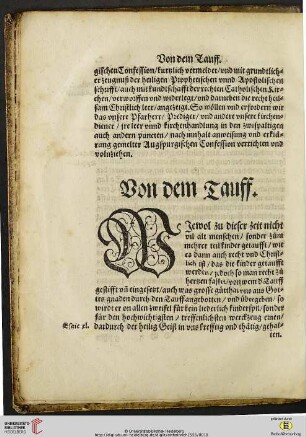 Von dem Tauff.
gischen Confession / kurtzlich vermeldet / vnd mit grundtlicher
erzeugnuß der heiligen Prophetischen vnnd Apostolischen
schrifft / auch mit kundtschafft der rechten Catholischen Kirchen
/ verworffen vnd widerlegt / vnd darneben die recht heilsam
Christlich leer / angezeigt. So wöllen vnd erfordern wir
das vnsere Pfarherr / Prediger / vnd andere vnsere kirchendiener
/ jre leer vnnd kirchenhandlung in den zwispaltigen
auch andern puncten / nach innhalt anweisung vnd erklärung
gemelter Augspurgischen Confession verrichten vnd
volnziehen.
Von dem Tauff.
WJewol zu diser zeit nicht
vil alt menschen / sonder zům
mehrer teil kinder getaufft / wie
es dann auch recht vnd Christlich
ist / das die kinder getaufft
werden / jedoch so man recht zů
hertzen fasset / von wem d' Tauff
gestifft vñ eingesetzt / auch was grosse gůtthat vns auß Gottes
gnaden durch den Tauff angebotten / vnd übergeben / so
würdt er on allen zweifel für kein liederlich kinderspil / sonder
für den hochwichtigsten vnd treffenlichsten werckzeug einen /
Esaie xl.
dardurch der heilig Geist in vns kreftig vnd thätig / gehalten.
UNIVERSITÄTS-
BIBLIOTHEK
HEIDELBERG
© Universitätsbibliothek Heidelberg